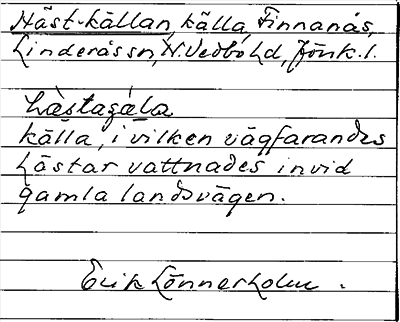 Häst-källan, källa, Finnanäs,
Linderås sn, N. Vedbo hd, Jönk. l.
hàstaɡála
källa, i vilken vägfarandes
hästar vattnades invid
gamla landsvägen.
Erik Lönnerholm.